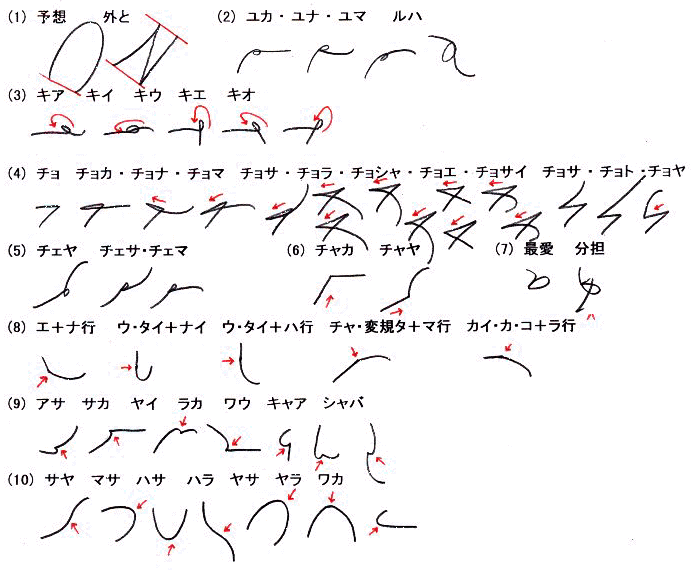 (1) 予想 外と (2) ユカ・ユナ・ユマ ルハ
(3) キア キイ キウ キエ キオ
(4) チョ チョカ・チョナ・チョマ チョサ・チョラ・チョシャ・チョエ・チョサイ チョサ・チョト・チョヤ
(5) チェヤ チェサ・チェマ (6) チャカ チャヤ (7) 最愛 分担
ハ
(8) エ+ナ行 ウ・タイ+ナイ ウ・タイ+ハ行 チャ・変規タ+マ行 カイ・カ・コ+ラ行
(9) アサ サカ ヤイ ラカ ワウ キャア シャバ
(10) サヤ マサ ハサ ハラ ヤサ ヤラ ワカ